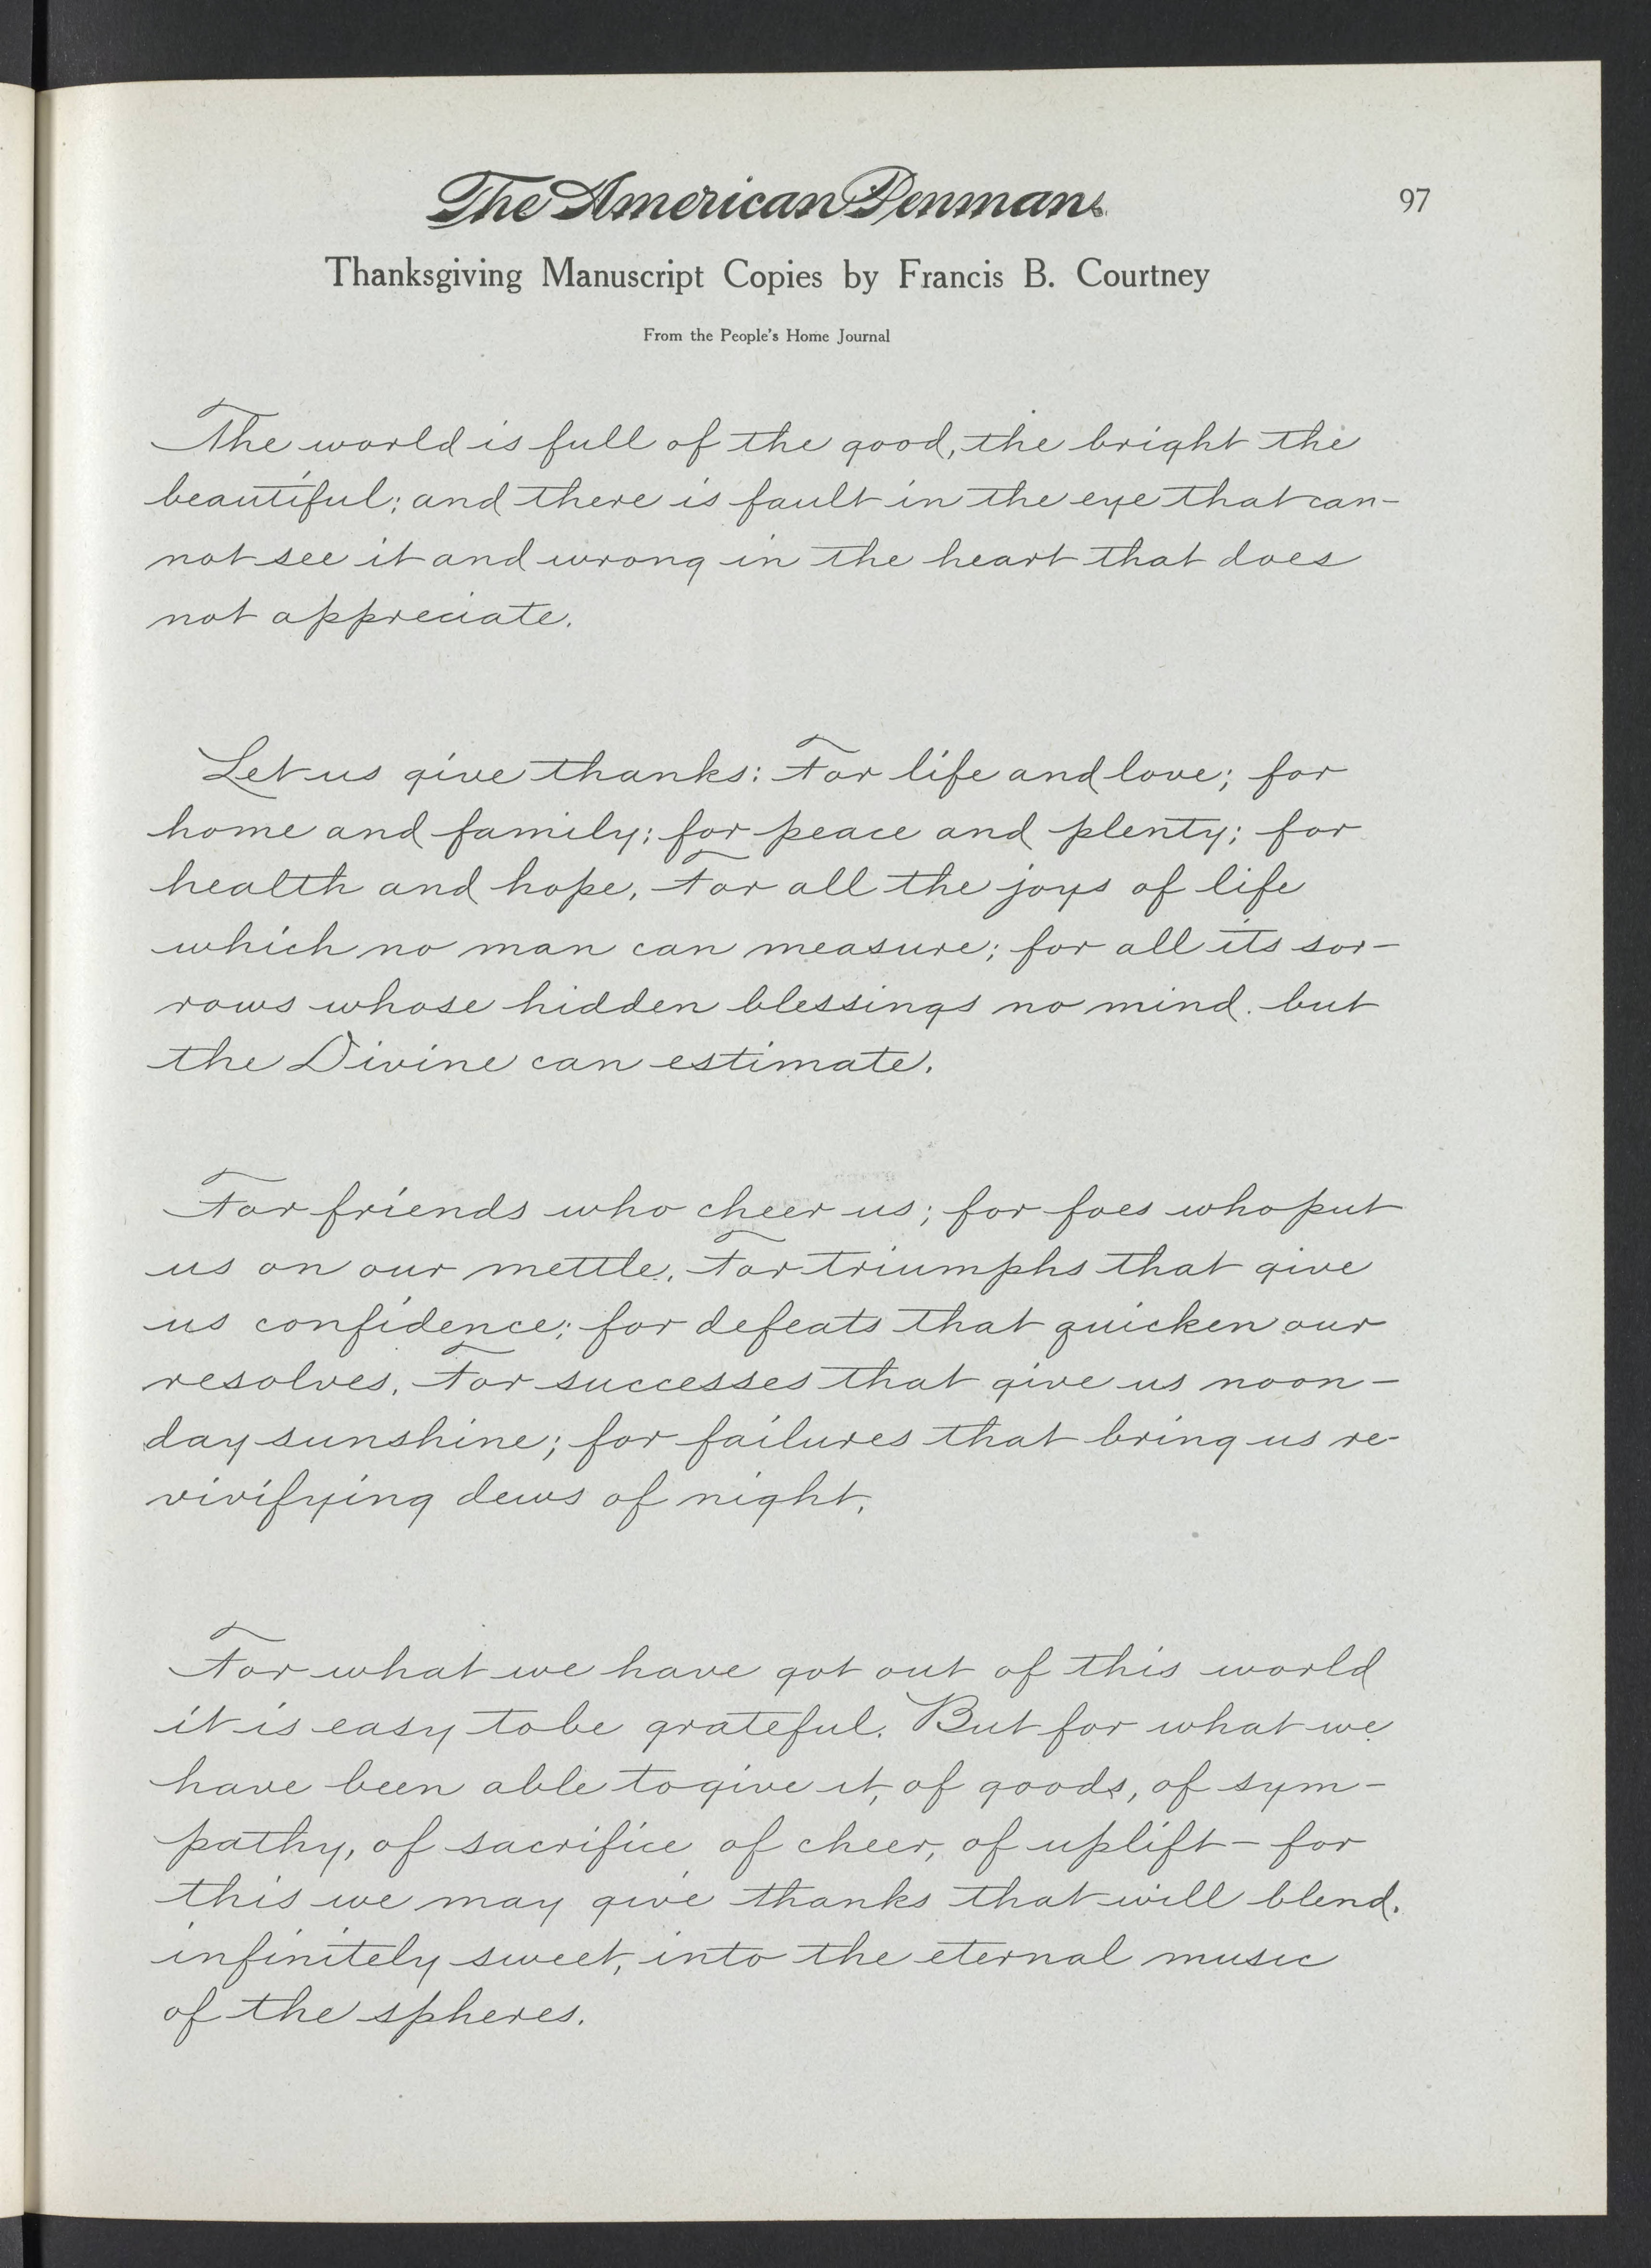 The American Penman
97
Thanksgiving Manuscript Copies by Francis B. Courtney
From the People's Home Journal
The world is full of the good, the bright the
beautiful; and there is fault in the eye that can-
not see it and wrong in the heart that does
not appreciate.
Let us give thanks: For life and love; for
home and family; for peace and plenty; for
health and hope. For all the joys of life
which no man can measure; for all its sor-
rows whose hidden blessings no mind but
the Divine can estimate.
For friends who cheer us; for foes who put
us on our mettle. For triumphs that give
us confidence; for defeats that quicken our
resolves. For successes that give us noon-
day sunshine; for failures that bring us re-
vivifying dews of night.
For what we have got out of this world
it is easy to be grateful. But for what we
have been able to give it, of goods, of sym-
pathy, of sacrifice of cheer, of uplift - for
this we may give thanks that will blend.
infinitely sweet, into the eternal music
of the spheres.